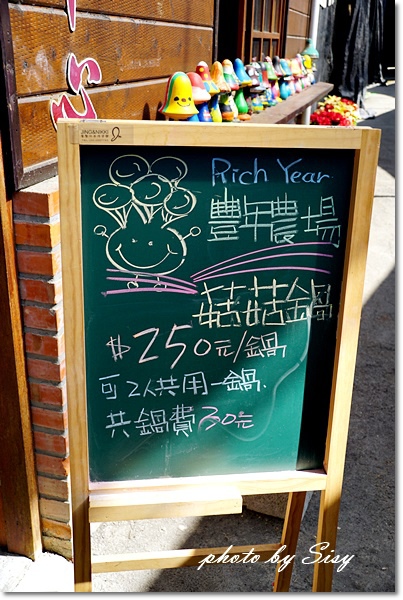 JINOANIKKI
Rich Year
豐年農場
菇菇鍋
$250元/鍋
可2人共用一鍋.
共鍋費30元
photo by Sisy